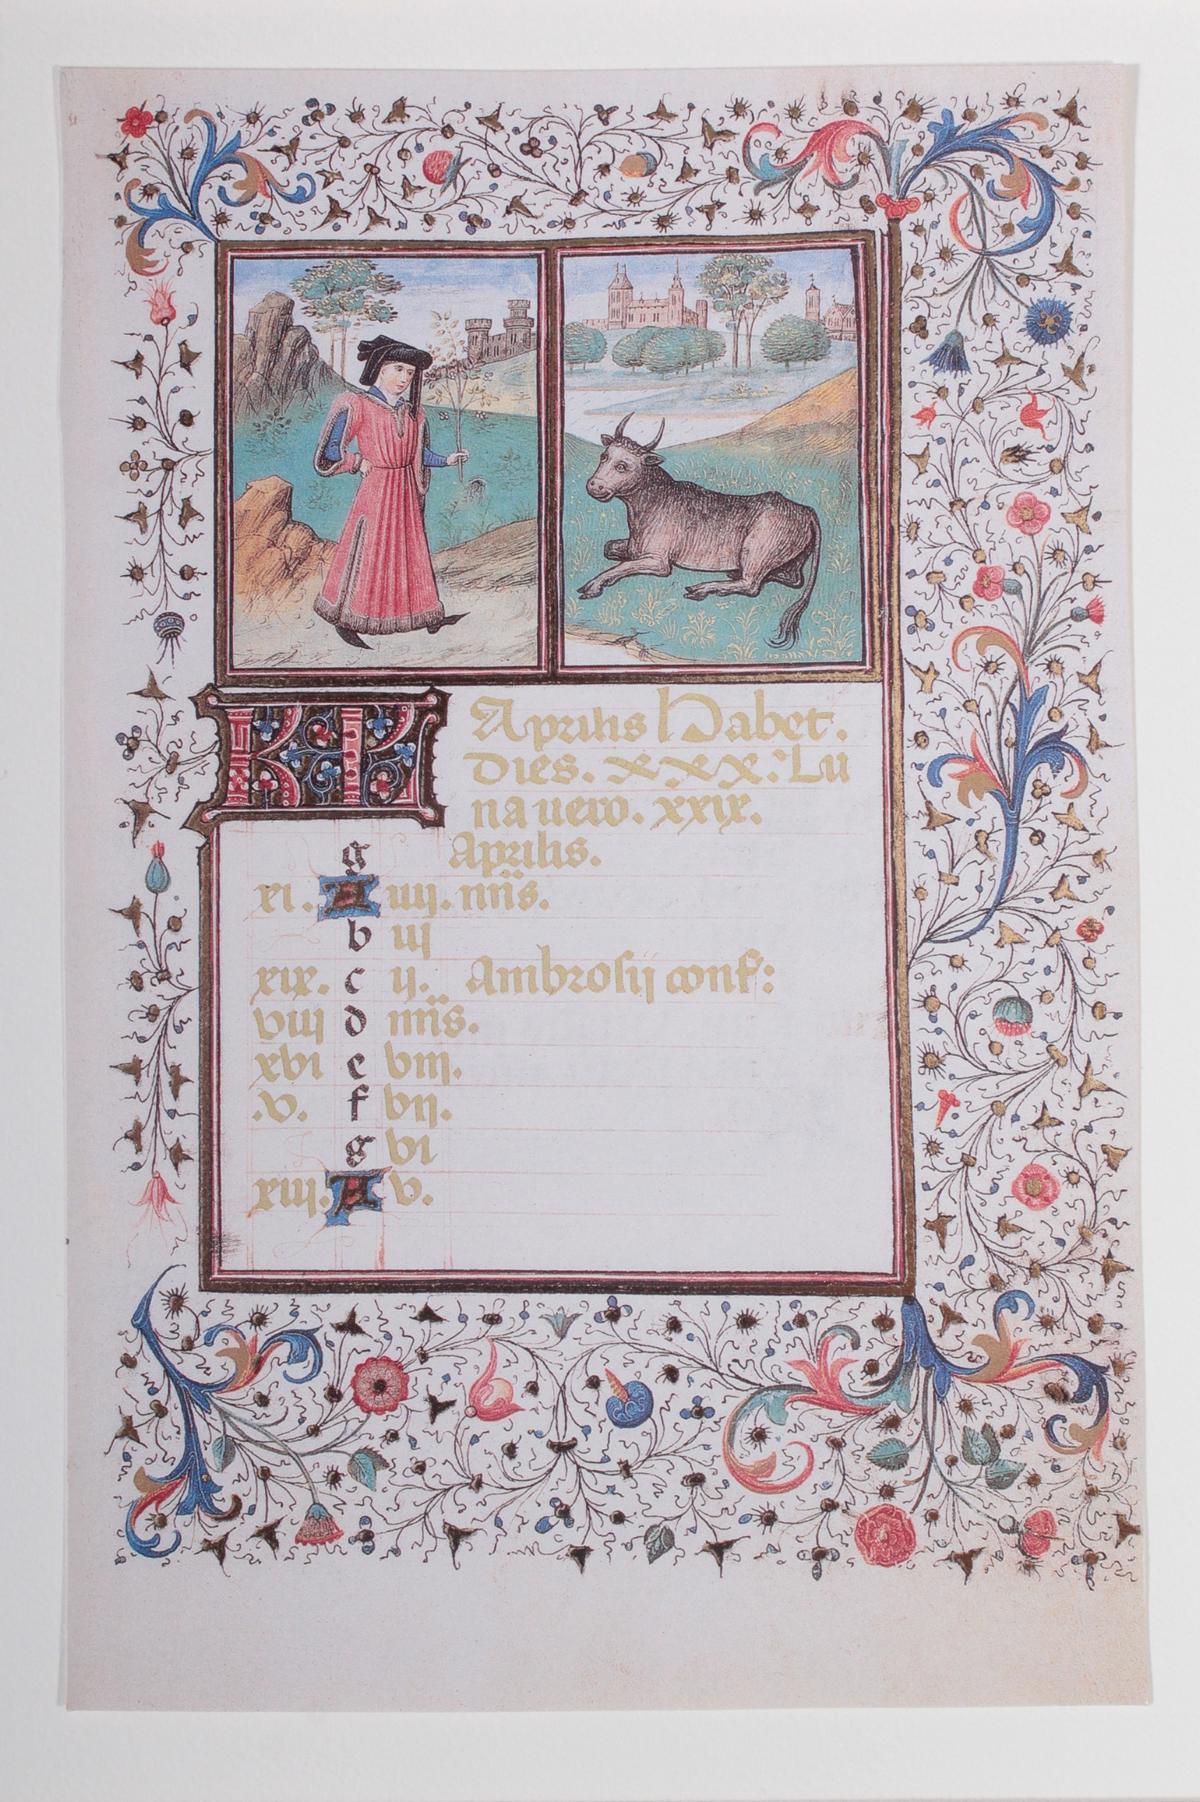 KL Aprilis habet.
Dies. xxx. Lu
na uero. xxix.
g Aprilis.
xi. A iiij. nn̄s.
b iij
xix. c ij. Ambrosij conf:
viij d nn̄s.
xvi e viij.
.v. f vij.
g vi
xiij. A v.